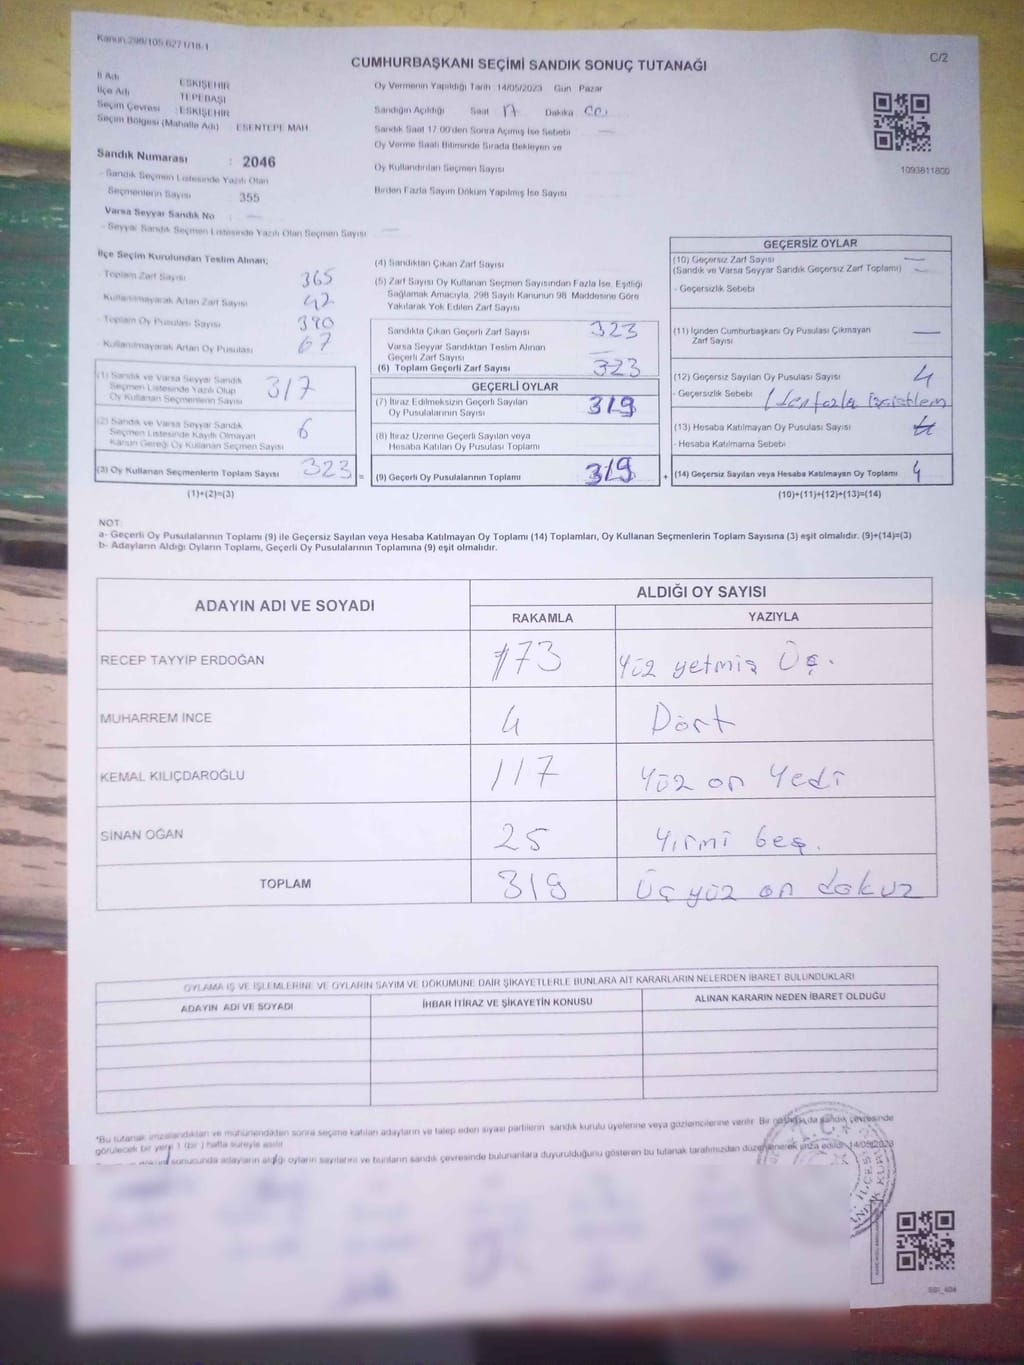 Kanun:298/105,6271/18-1
C/2
CUMHURBAŞKANI SEÇİMİ SANDIK SONUÇ TUTANAĞI
İl Adı : ESKİŞEHİR
İlçe Adı : TEPEBAŞI
Seçim Çevresi : ESKİŞEHİR
Seçim Bölgesi (Mahalle Adı) : ESENTEPE MAH.
Oy Vermenin Yapıldığı Tarih 14/05/2023 Gün Pazar
Sandığın Açıldığı Saat 17 Dakika 00
Sandık Saat 17.00'den Sonra Açılmış İse Sebebi —
Oy Verme Saati Bitiminde Sırada Bekleyen ve
Oy Kullandırılan Seçmen Sayısı
Birden Fazla Sayım Döküm Yapılmış İse Sayısı
1093811800
Sandık Numarası : 2046
- Sandık Seçmen Listesinde Yazılı Olan
Seçmenlerin Sayısı : 355
Varsa Seyyar Sandık No : —
- Seyyar Sandık Seçmen Listesinde Yazılı Olan Seçmen Sayısı : —
İlçe Seçim Kurulundan Teslim Alınan;
- Toplam Zarf Sayısı 365
- Kullanılmayarak Artan Zarf Sayısı 42
- Toplam Oy Pusulası Sayısı 390
- Kullanılmayarak Artan Oy Pusulası 67
(1) Sandık ve Varsa Seyyar Sandık
Seçmen Listesinde Yazılı Olup
Oy Kullanan Seçmenlerin Sayısı 317
(2) Sandık ve Varsa Seyyar Sandık
Seçmen Listesinde Kayıtlı Olmayan
Kanun Gereği Oy Kullanan Seçmen Sayısı 6
(3) Oy Kullanan Seçmenlerin Toplam Sayısı 323 =
(1)+(2)=(3)
(4) Sandıktan Çıkan Zarf Sayısı
(5) Zarf Sayısı Oy Kullanan Seçmen Sayısından Fazla İse, Eşitliği
Sağlamak Amacıyla, 298 Sayılı Kanunun 98. Maddesine Göre
Yakılarak Yok Edilen Zarf Sayısı
Sandıkta Çıkan Geçerli Zarf Sayısı 323
Varsa Seyyar Sandıktan Teslim Alınan
Geçerli Zarf Sayısı —
(6) Toplam Geçerli Zarf Sayısı 323
GEÇERLİ OYLAR
(7) İtiraz Edilmeksizin Geçerli Sayılan
Oy Pusulalarının Sayısı 319
(8) İtiraz Üzerine Geçerli Sayılan veya
Hesaba Katılan Oy Pusulası Toplamı
(9) Geçerli Oy Pusulalarının Toplamı 319 +
GEÇERSİZ OYLAR
(10) Geçersiz Zarf Sayısı —
(Sandık ve Varsa Seyyar Sandık Geçersiz Zarf Toplamı) —
- Geçersizlik Sebebi
(11) İçinden Cumhurbaşkanı Oy Pusulası Çıkmayan
Zarf Sayısı —
(12) Geçersiz Sayılan Oy Pusulası Sayısı 4
- Geçersizlik Sebebi 1'den fazla
(13) Hesaba Katılmayan Oy Pusulası Sayısı
- Hesaba Katılmama Sebebi
(14) Geçersiz Sayılan veya Hesaba Katılmayan Oy Toplamı 4
(10)+(11)+(12)+(13)=(14)
NOT:
a- Geçerli Oy Pusulalarının Toplamı (9) ile Geçersiz Sayılan veya Hesaba Katılmayan Oy Toplamı (14) Toplamları, Oy Kullanan Seçmenlerin Toplam Sayısına (3) eşit olmalıdır. (9)+(14)=(3)
b- Adayların Aldığı Oyların Toplamı, Geçerli Oy Pusulalarının Toplamına (9) eşit olmalıdır.
ADAYIN ADI VE SOYADI
ALDIĞI OY SAYISI
RAKAMLA YAZIYLA
RECEP TAYYİP ERDOĞAN 173 Yüz yetmiş Üç.
MUHARREM İNCE 4 Dört
KEMAL KILIÇDAROĞLU 117 Yüz on Yedi
SİNAN OĞAN 25 Yirmi beş.
TOPLAM 319 Üç yüz on dokuz
OYLAMA İŞ VE İŞLEMLERİNE VE OYLARIN SAYIM VE DÖKÜMÜNE DAİR ŞİKAYETLERLE BUNLARA AİT KARARLARIN NELERDEN İBARET BULUNDUKLARI
ADAYIN ADI VE SOYADI İHBAR İTİRAZ VE ŞİKAYETİN KONUSU ALINAN KARARIN NEDEN İBARET OLDUĞU
*Bu tutanak imzalandıktan ve mühürlendikten sonra seçime katılan adayların ve talep eden siyasi partilerin sandık kurulu üyelerine veya gözlemcilerine verilir. Bir de sandık çevresinde
görülecek bir yere 1 (bir) hafta süreyle asılır.
sonucunda adayların aldığı oyların sayılarını ve bunların sandık çevresinde bulunanlara duyurulduğunu gösteren bu tutanak tarafımızdan düzenlenerek imza edildi. 14/05/2023